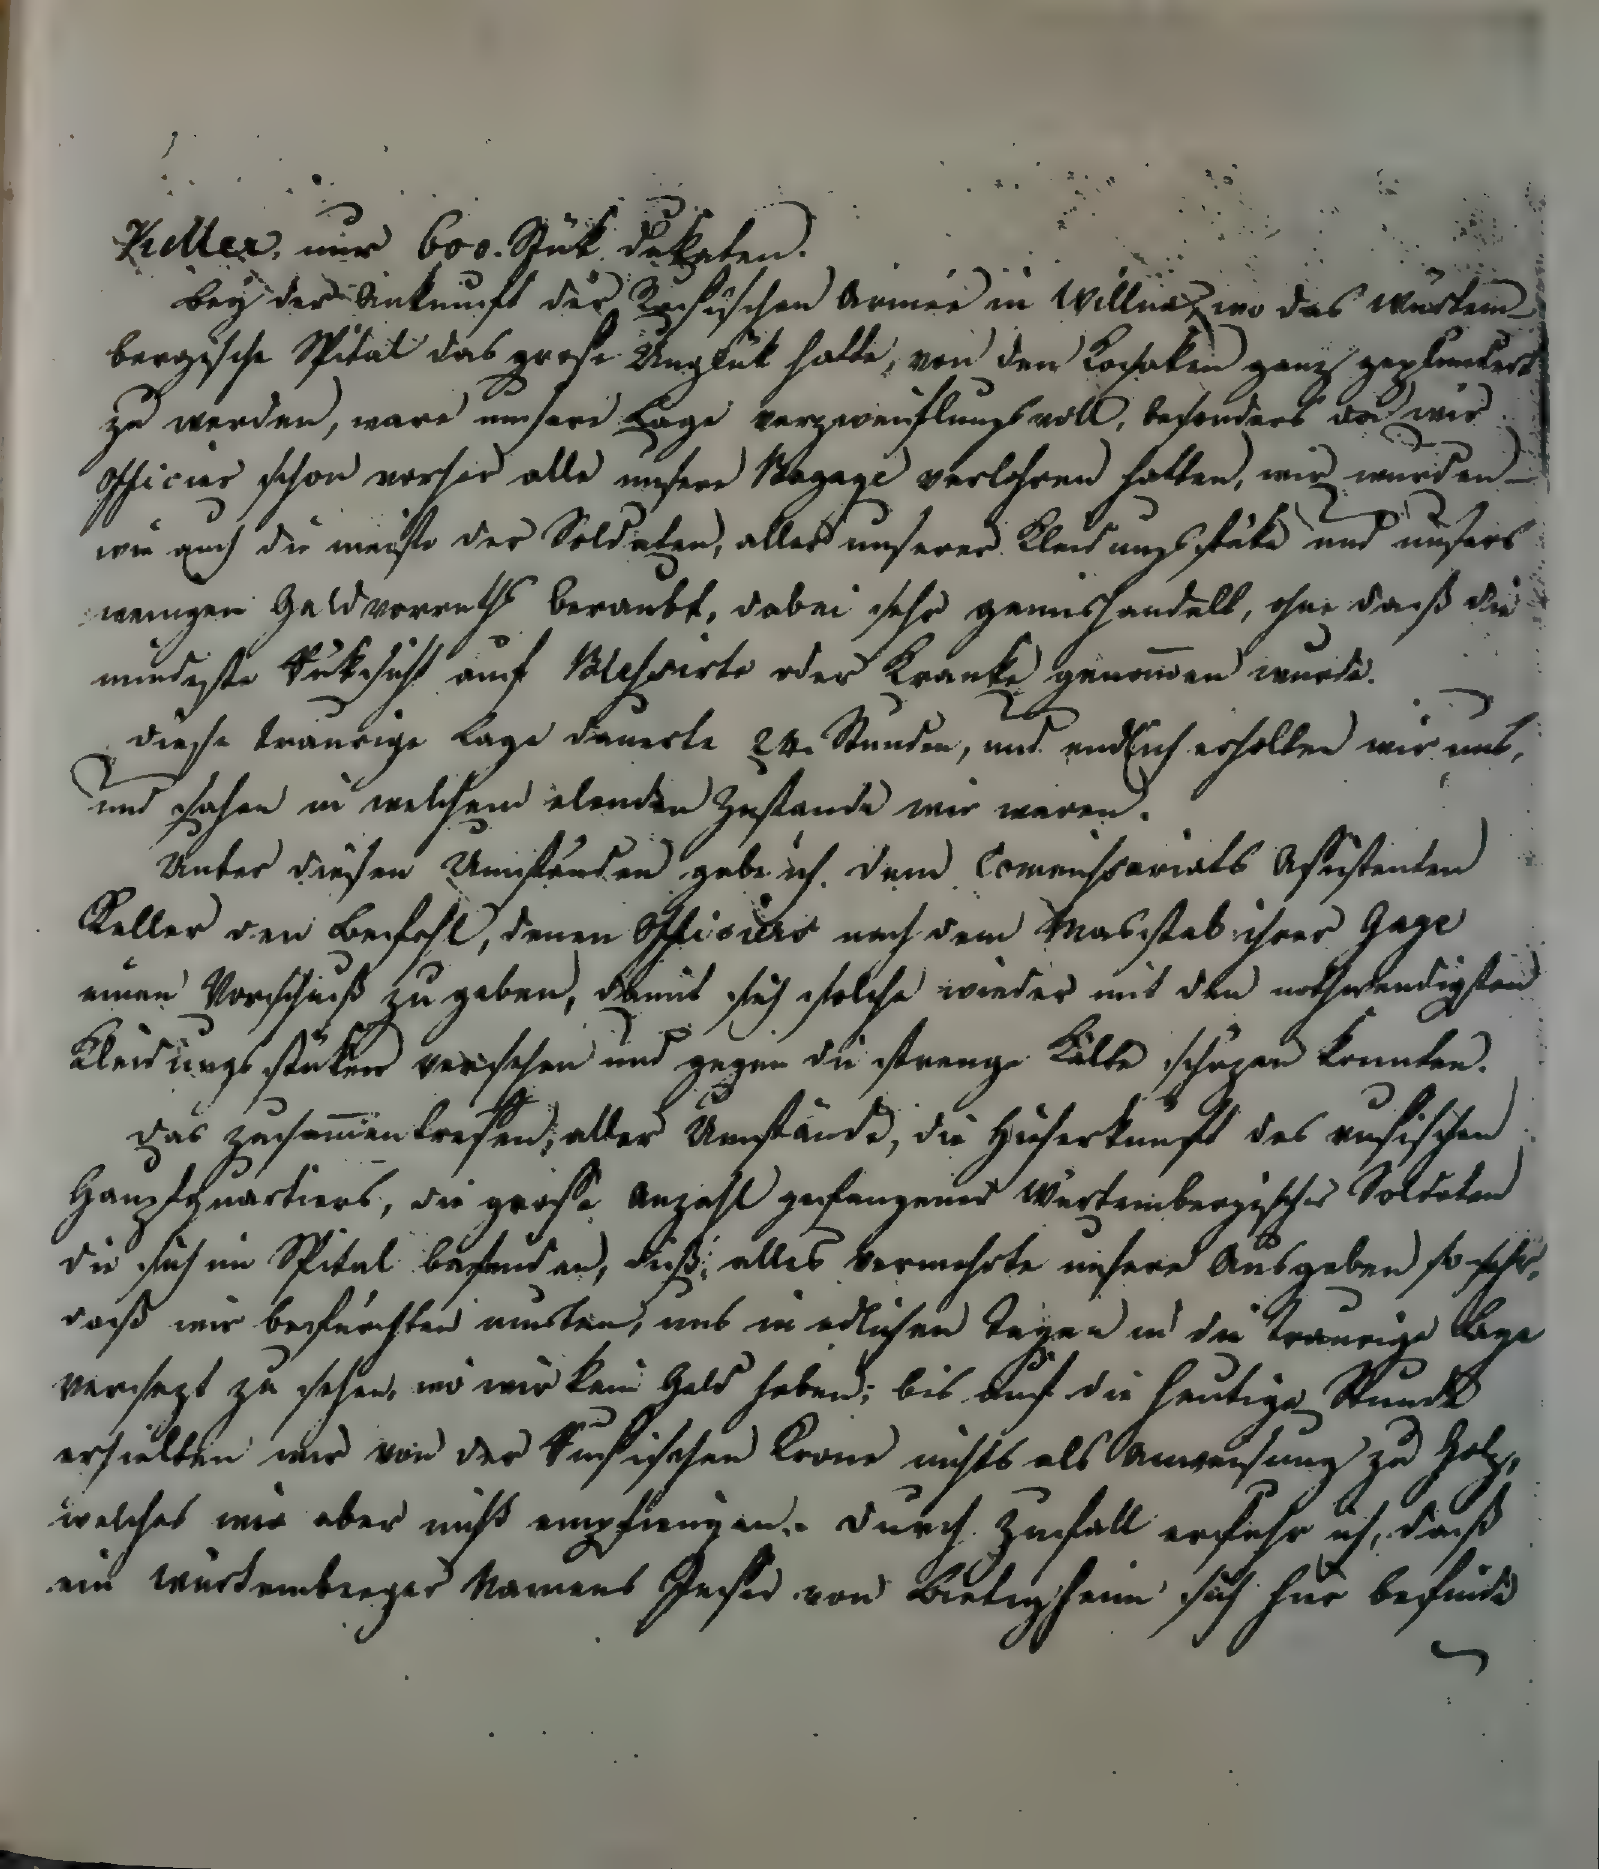 Keller, nur 600. Stük Dukaten.
Bey der Ankunft der Rußischen Armée in Willna, wo das Würtem-
bergische Spital das große Unglük hatte, von den Kosaken ganz geplündert
zu werden, ware unsere Lage verzweiflungsvoll, besonders da wir
Officier schon vorher alle unsere Bagage verlohren hatten, wir wurden –
wie auch die meiste der Soldaten, aller unserer Kleidungsstüke und unsers
wenigen Geldvorraths beraubt, dabei sehr gemishandelt, ohne daß die
mindeste Rüksicht auf Blessirte oder Kranke genom̄en wurde.
Diese traurige Lage dauerte 24. Stunden, und endlich erholten wir uns,
und sahen in welchem elenden Zustande wir waren.
Unter diesen Umständen gabe ich dem Commissariats Assistenten
Keller den Befehl, denen Officiers nach dem Masstab ihrer Gage
einen Vorschuß zu geben, damit sich solche wieder mit den nothwendigsten
Kleidungsstüken versehen und gegen die strenge Kälte schüzen konnten.
Das Zusam̄entreffen aller Umstände, die Hieherkunft des rußischen
Hauptquartiers, die große Anzahl gefangener Würtembergischer Soldaten
die sich im Spital befanden, diß alles vermehrte unsere Ausgaben so sehr,
daß wir befürchten musten, uns in etlichen Tagen in die traurige Lage
versezt zu sehen, wo wir kein Geld haben; bis auf die heutige Stunde
erhielten wir von der Rußischen Krone nichts als Anweisung zu Holz,
welches wir aber nicht empfiengen. Durch Zufall erfuhr ich, daß
ein Würtemberger Namens von Bietigheim sich hier befinde